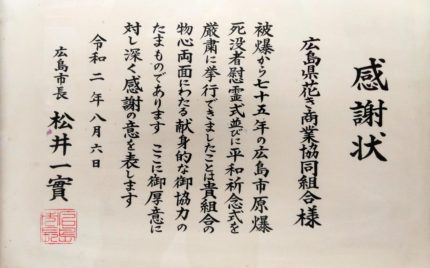 感謝状
広島県花き商業協同組合様
被爆から七十五年の広島市原爆
死没者慰霊式並びに平和祈念式を
厳粛に挙行できましたことは貴組合の
物心両面にわたる献身的な御協力の
たまものであります ここに御厚意に
対し深く感謝の意を表します
令和二年八月六日
広島市長 松井一實